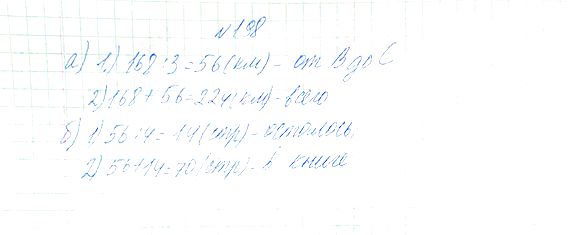 №198
а) 1) 168 : 3 = 56 (км) - от В до С
2) 168 + 56 = 224 (км) - всего
б) 1) 56 : 4 = 14 (стр) - осталось.
2) 56 + 14 = 70 (стр) - в книге